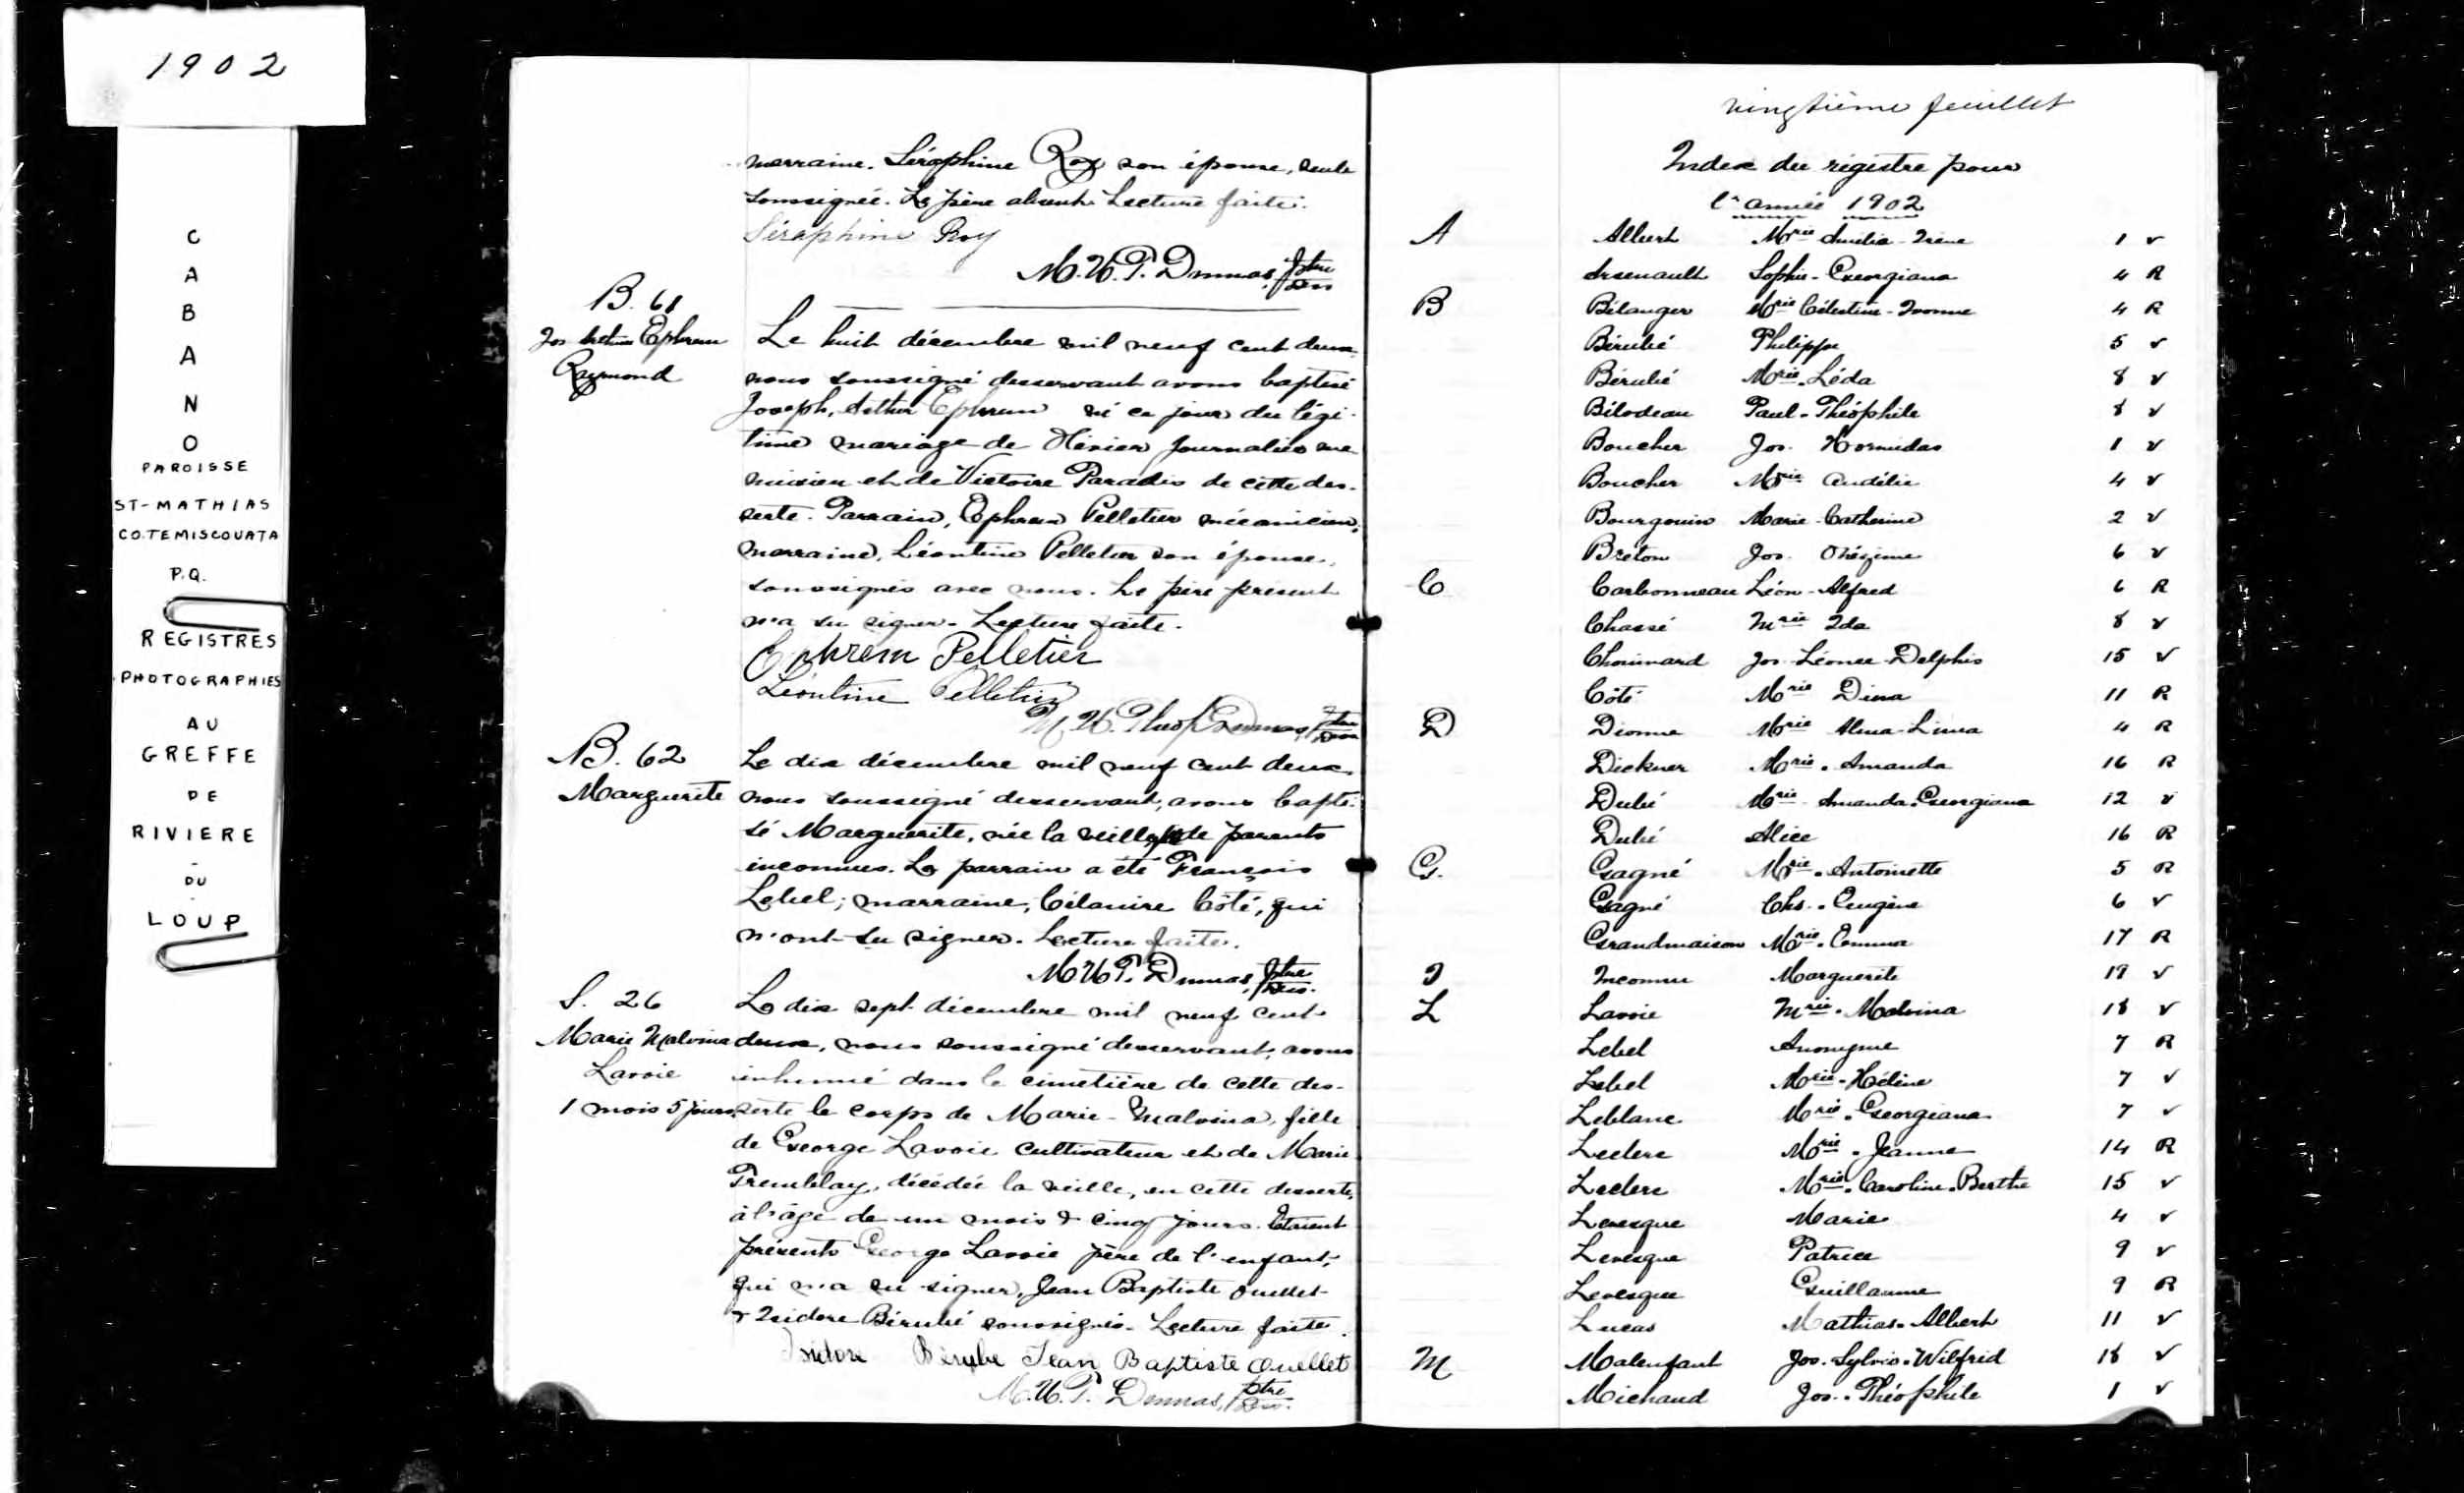 1902
CABANO
PAROISSE
ST-MATHIAS
CO.TEMISCOUATA
P.Q.
REGISTRES
PHOTOGRAPHIES
AU
GREFFE
DE
RIVIERE
-
DU
-
LOUP
marraine. Séraphine Roy son épouse, seule
soussignée. Le père absent. Lecture faite.
Séraphine Roy
M.U.P. Dumas, Ptre
Des
B. 61
Jos Arthur Ephrem
Raymond
Le huit décembre mil neuf cent deux,
nous soussigné desservant avons baptisé
Joseph, Arthur Ephrem né ce jour du légi-
time mariage de journalier
et de Victoire Paradis de cette des-
serte. Parrain, Ephrem Pelletier mécanicien,
marraine, Léontine Pelletier son épouse,
soussignés avec nous. Le père présent
n'a su signer. Lecture faite.
Ephrem Pelletier
Léontine Pelletier
M.U. Théop Dumas, Ptre
Des
B. 62
Marguerite
Le dix décembre mil neuf cent deux,
nous soussigné desservant, avons bapti-
sé Marguerite, née la veille de parents
inconnus. Le parrain a été François
Lebel; marraine, Célanire Côté, qui
n'ont su signer. Lecture faite.
M.U.P. Dumas, Ptre
Des.
S. 26
Marie Malvina
Lavoie
1 mois 5 jours
Le dix sept décembre mil neuf cent
deux, nous soussigné desservant, avons
inhumé dans le cimetière de cette des-
serte le corps de Marie-Malvina, fille
de George Lavoie cultivateur et de Marie
Tremblay, décédée la veille, en cette desserte,
à l'âge de un mois & cinq jours. Etaient
présents George Lavoie père de l'enfant,
qui n'a su signer, Jean Baptiste Ouellet
& Isidore Bérubé soussignés. Lecture faite.
Isidore Bérube Jean Baptiste Ouellet
M.U.P. Dumas, Ptre
Des.
vingtième feuillet
Index du régistre pour
l'année 1902
A Albert Mrie Amélia-Irène 1 v
Arsenault Sophie-Georgiana 4 R
B Bélanger Mrie Célestine-Ivonne 4 R
Bérubé Philippe 5 v
Bérubé Mrie-Léda 8 v
Bilodeau Paul-Théophile 8 v
Boucher Jos. Hormidas 1 v
Boucher Mrie Audélie 4 v
Bourgouin Marie-Catherine 2 v
Breton Jos. Onézime 6 v
C Carbonneau Léon-Alfred 6 R
Chassé Mrie Ida 8 v
Chouinard Jos-Léonce-Delphis 15 v
Côté Mrie Dina 11 R
D Dionne Mrie Alma-Linea 4 R
Dickner Mrie. Amanda 16 R
Dubé Mrie Amanda. Georgiana 12 v
Dubé Alice 16 R
G. Gagné Mrie. Antoinette 5 R
Gagné Chs.. Eugène 6 v
Grandmaison Mrie. Emma 17 R
I Inconnu Marguerite 19 v
L Lavoie Mrie. Malvina 18 v
Lebel Anonyme 7 R
Lebel Mrie-Hélène 7 v
Leblanc Mrie. Georgiana 7 v
Leclerc Mrie. Jeanne 14 R
Leclerc Mrie. Caroline. Berthe 15 v
Levesque Marie 4 v
Levesque Patrice 9 v
Levesque Guillaume 9 R
Lucas Mathias-Albert 11 v
M Malenfant Jos. Sylvio. Wilfrid 18 v
Michaud Jos.. Théophile 1 v